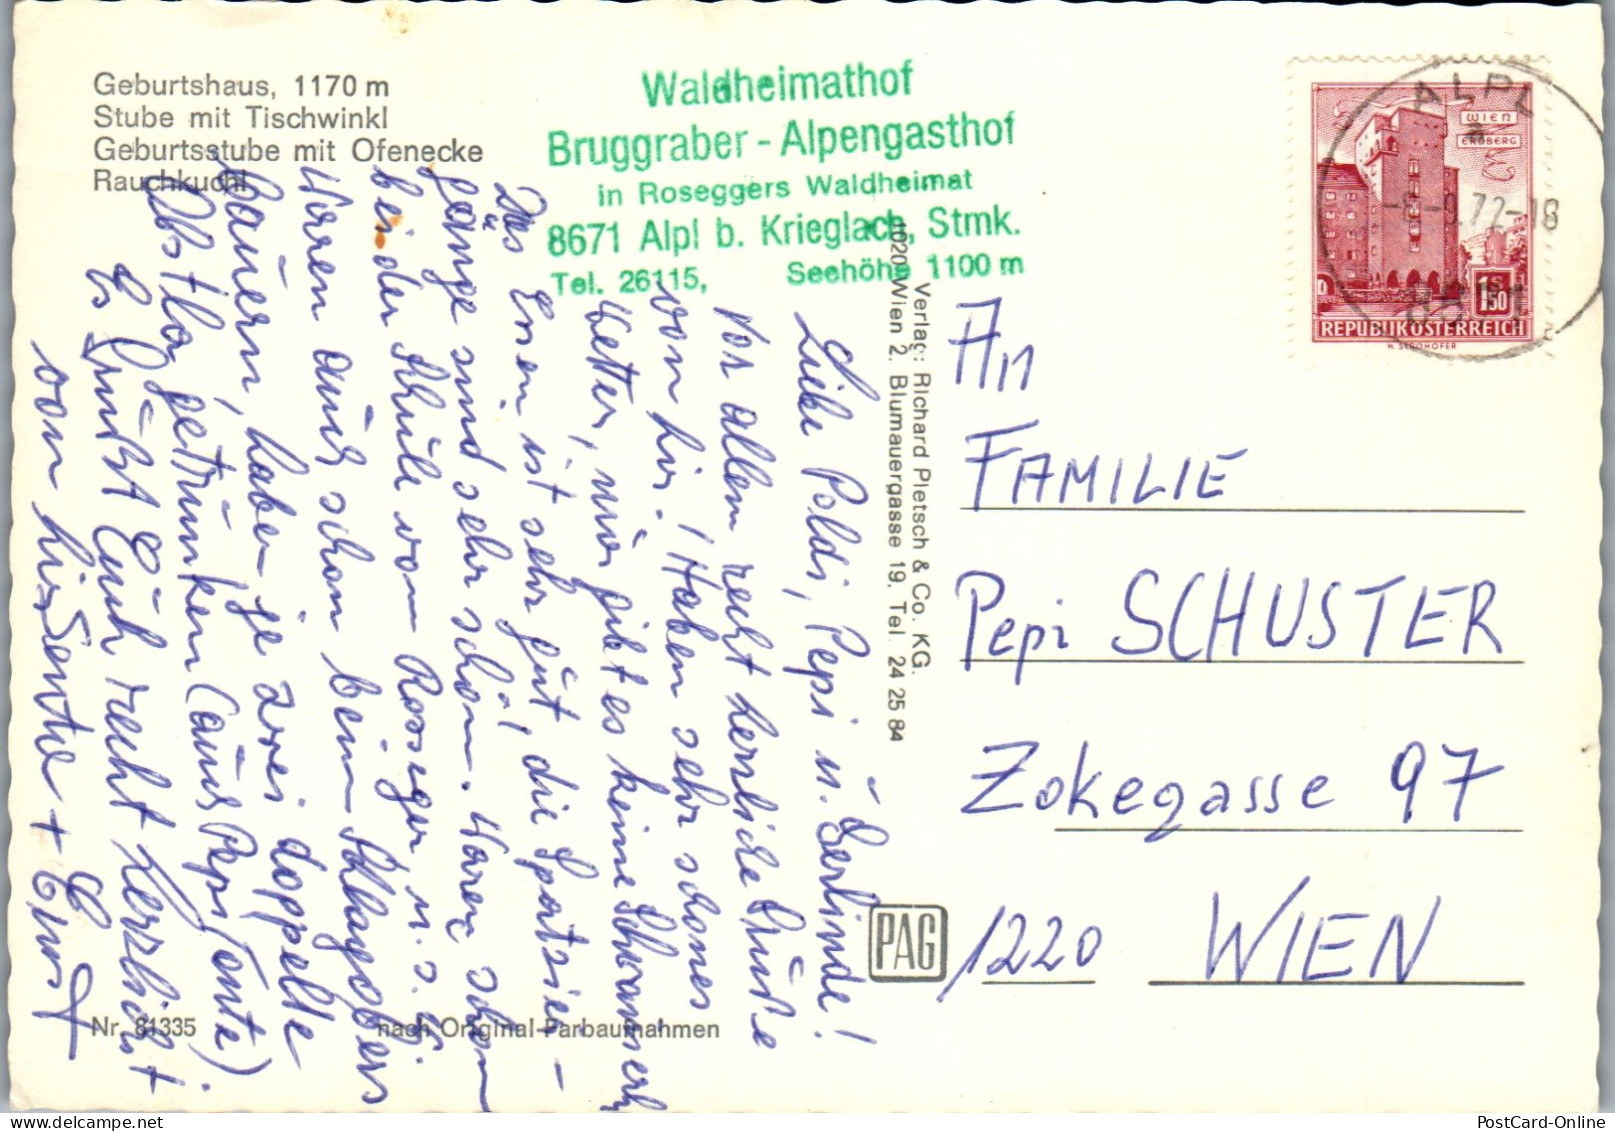 Geburtshaus, 1170 m
Stube mit Tischwinkl
Geburtsstube mit Ofenecke
Rauchkuchl
Waldheimathof
Bruggraber - Alpengasthof
in Roseggers Waldheimat
8671 Alpl b. Krieglach, Stmk.
Tel. 26115, Seehöhe 1100 m
ALPL
a
-9.72-18
WIEN
ERDBERG
1S
1.50
REPUBLIK ÖSTERREICH
Liebe Poldi, Pepi u. Gerlinde!
Vor allem recht herzliche Grüße
von hier! Haben sehr schönes
Wetter, nur gibt es keine Schwammerl
Das Essen ist sehr gut, die Spazier-
gänge sind sehr schön. Waren schon
bei der Schule vom Rossegger, u.s.w.
Waren auch schon beim
Bauern, haben je zwei doppelte
Obstla, getrunken (auch Pepi Tante)
Es Grüßt Euch recht herzlichst
von hier +
Verlag: Richard Pietsch & Co. KG.
1020 Wien 2. Blumauergasse 19. Tel. 24 25 84
An
FAMILIE
Pepi SCHUSTER
Zokegasse 97
1220 WIEN
PAG
Nr. 81335
nach Original-Farbaufnahmen
PostCard-Online